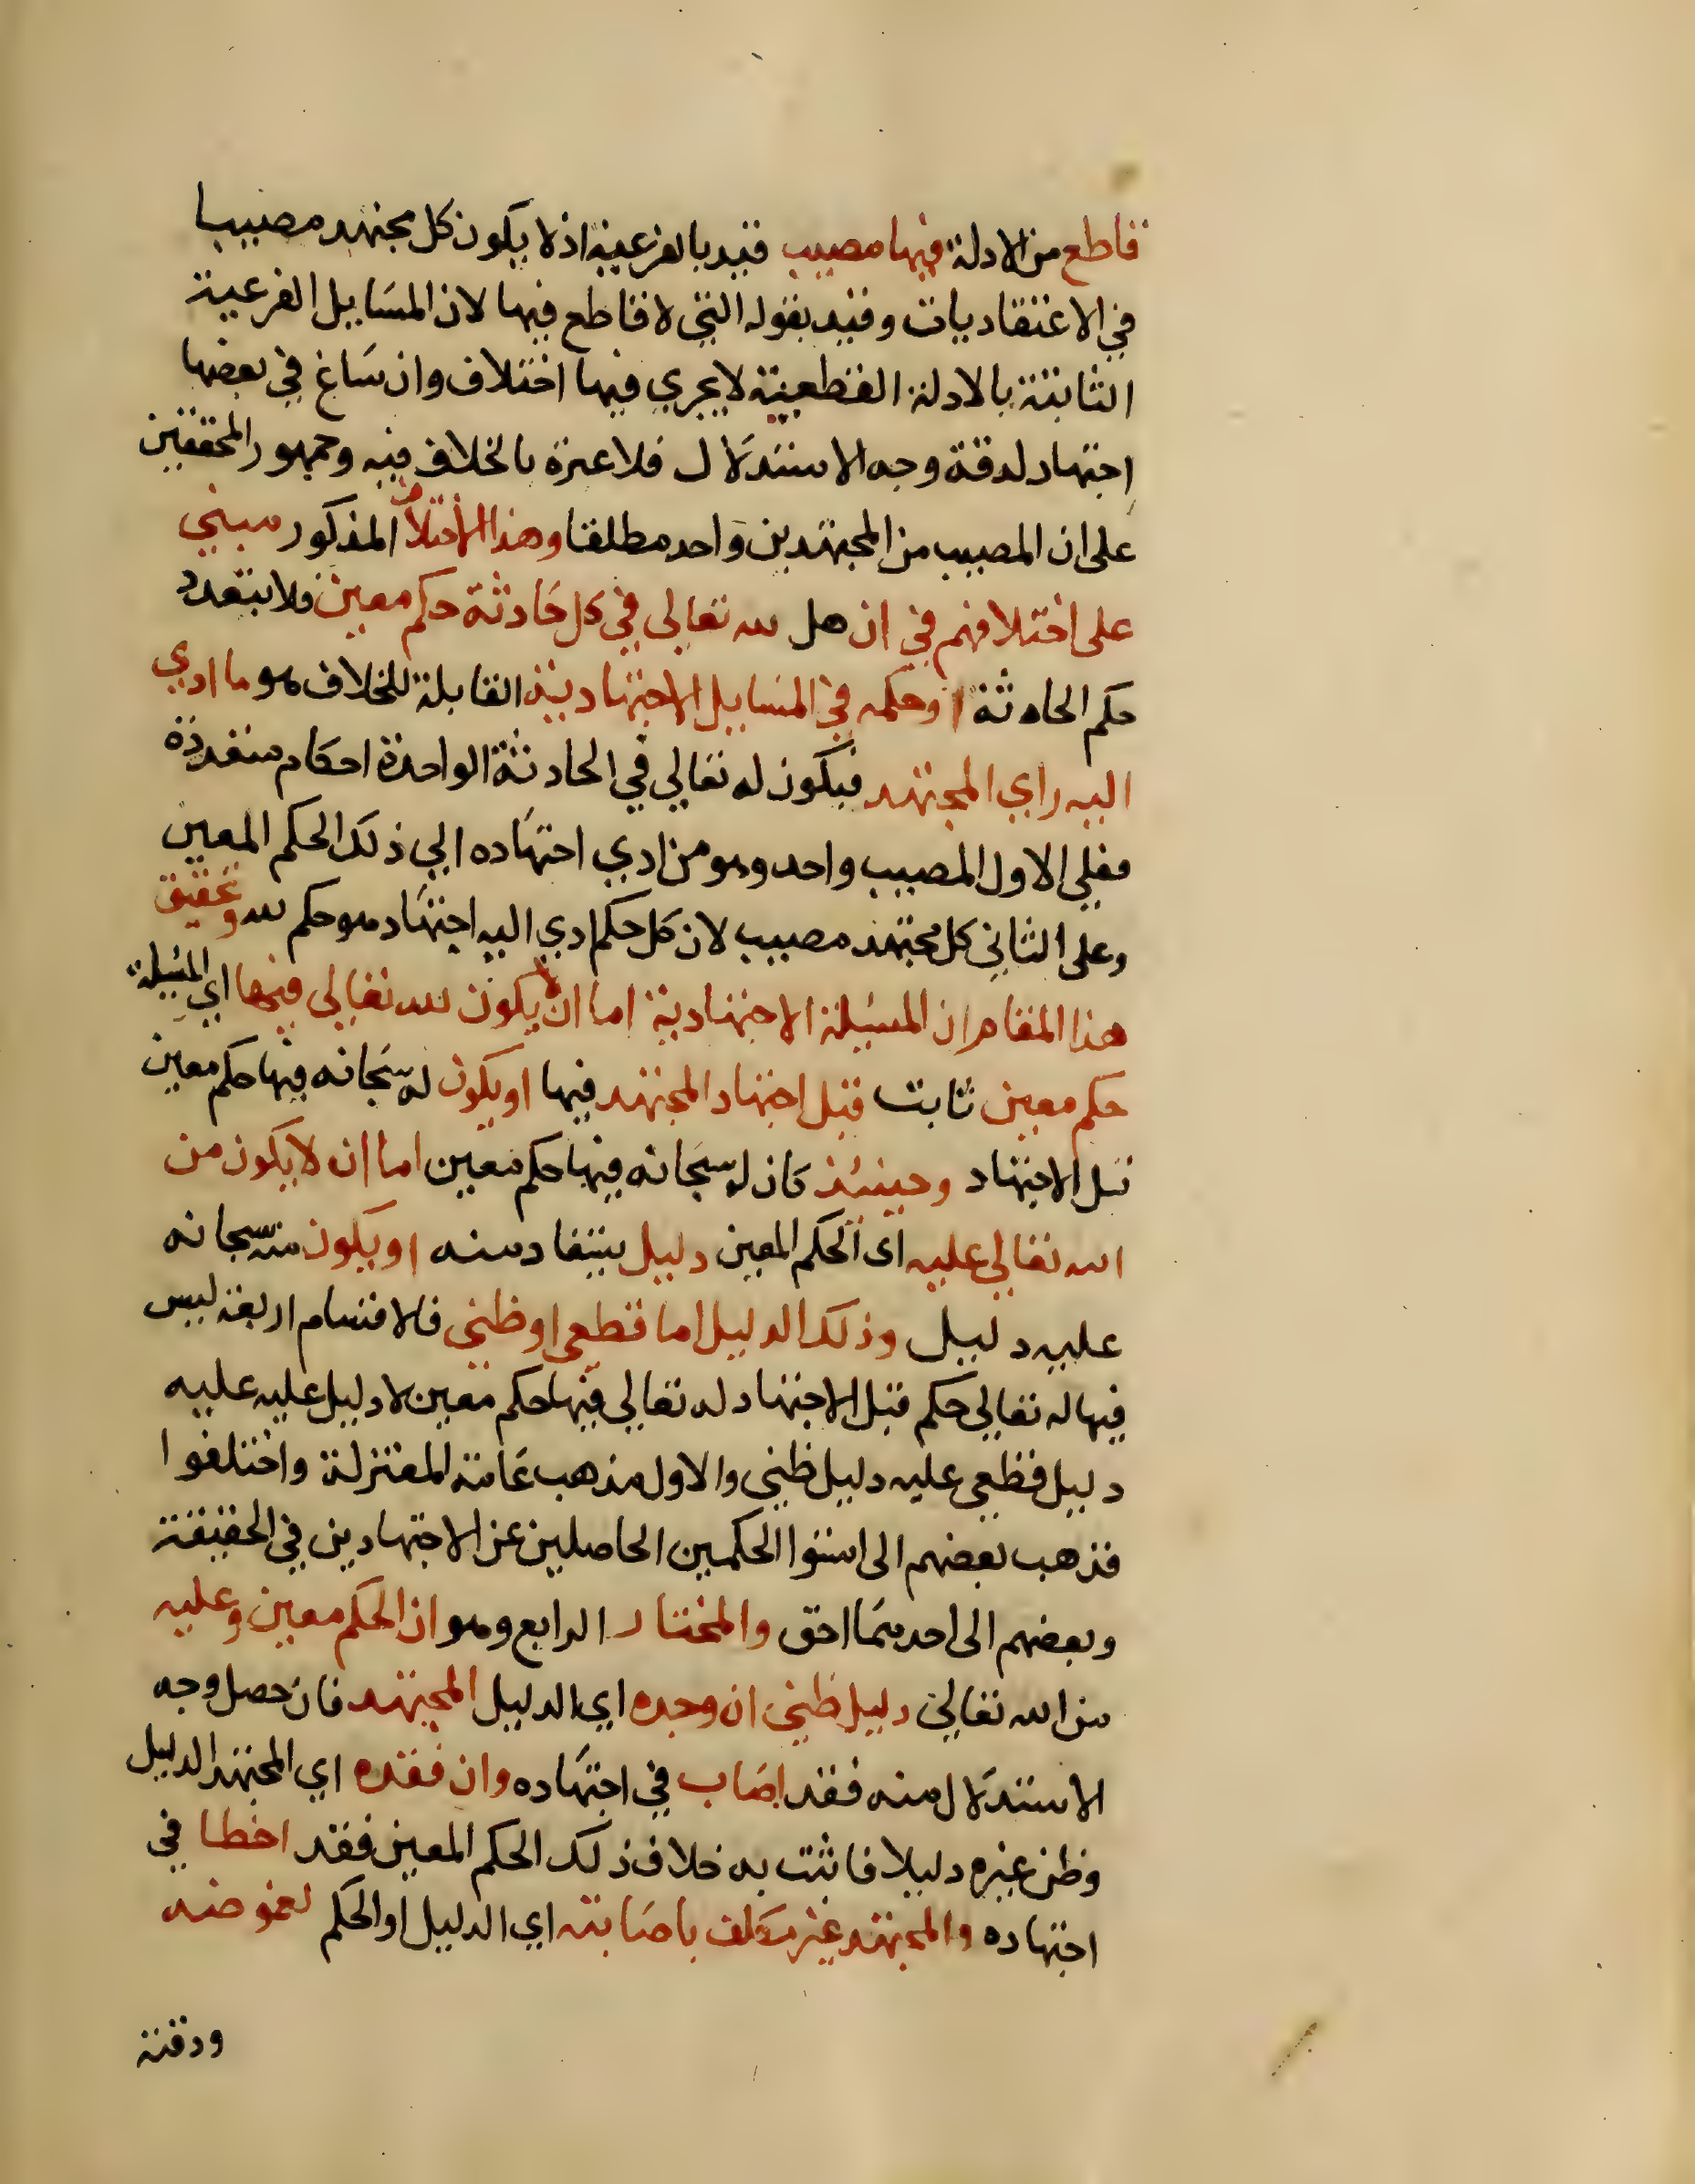 قاطع من الادلة فيها مصيب قيد بالفرعية اذ لا يكون كل مجتهد مصيبا
في الاعتقاديات وقيد بقوله التي لا قاطع فيها لان المسايل الفرعية
الثابتة بالادلة القطعية لا يجري فيها اختلاف وان ساغ في بعضها
اجتهاد لدقة وجه الاستدلال فلا عبرة بالخلاف فيه وجمهور المحققين
على ان المصيب من المجتهدين واحد مطلقا وهذا الاختلاف المذكور مبني
على اختلافهم في ان هل لله تعالى في كل حادثة حكم معين فلا يتعدد
حكم الحادثة او حكمه في المسايل الاجتهادية القابلة للخلاف هو ما ادي
اليه راي المجتهد فيكون له تعالي في الحادثة الواحدة احكام متعددة
فعلي الاول المصيب واحد وهو من ادي اجتهاده الي ذلك الحكم المعين
وعلى الثاني كل مجتهد مصيب لان كل حكم ادي اليه اجتهاد هو حكم لله وتحقيق
هذا المقام ان المسئلة الاجتهادية اما ان لا يكون لله تعالى فيها اي المسئلة
حكم معين ثابت قبل اجتهاد المجتهد فيها او يكون له سبحانه فيها حكم معين
قبل الاجتهاد وحينئذ كان له سبحانه فيها حكم معين اما ان لا يكون من
الله تعالي عليه اى الحكم المعين دليل يستفاد منه او يكون منه سبحانه
عليه دليل وذلك الدليل اما قطعي او ظني فالاقسام اربعة ليس
فيها له تعالي حكم قبل الاجتهاد له تعالي فيها حكم معين لا دليل عليه عليه
دليل قطعي عليه دليل ظني والاول مذهب عامة المعتزلة واختلفوا
فذهب بعضهم الى استوا الحكمين الحاصلين عن الاجتهادين في الحقيقة
وبعضهم الى احديهما احق والمختار الرابع وهو ان الحكم معين وعليه
من الله تعالي دليل ظني ان وجده اي الدليل المجتهد فان حصل وجه
الاستدلال منه فقد اصاب في اجتهاده وان فقده اي المجتهد الدليل
وظن غيره دليلا فاثبت به خلاف ذلك الحكم المعين فقد اخطا في
اجتهاده والمجتهد غير مكلف باصابته اي الدليل او الحكم لغموضه
ودقته